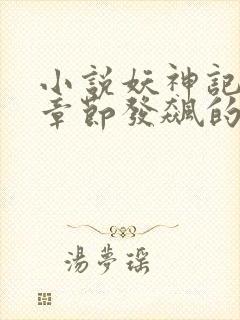 小說妖神記
章節發飆的
湯夢瑤